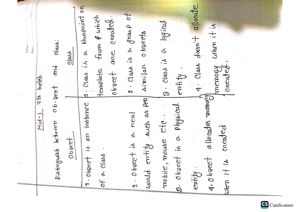 MJH-1 
Distinguish between object and class.
Object
1. Object is an instance
of a class.
2. Object is a real
world entity such as pen
mobile, mouse etc.
3. Object is a physical
entity
4. Object allocates memory
when it is created
Class
1. Class is a blueprint or
template from which
object are created
2. Class is a group of
similar objects
3. Class is a logical
entity.
4. Class don't allocate
memory when it is
created.
CamScanner